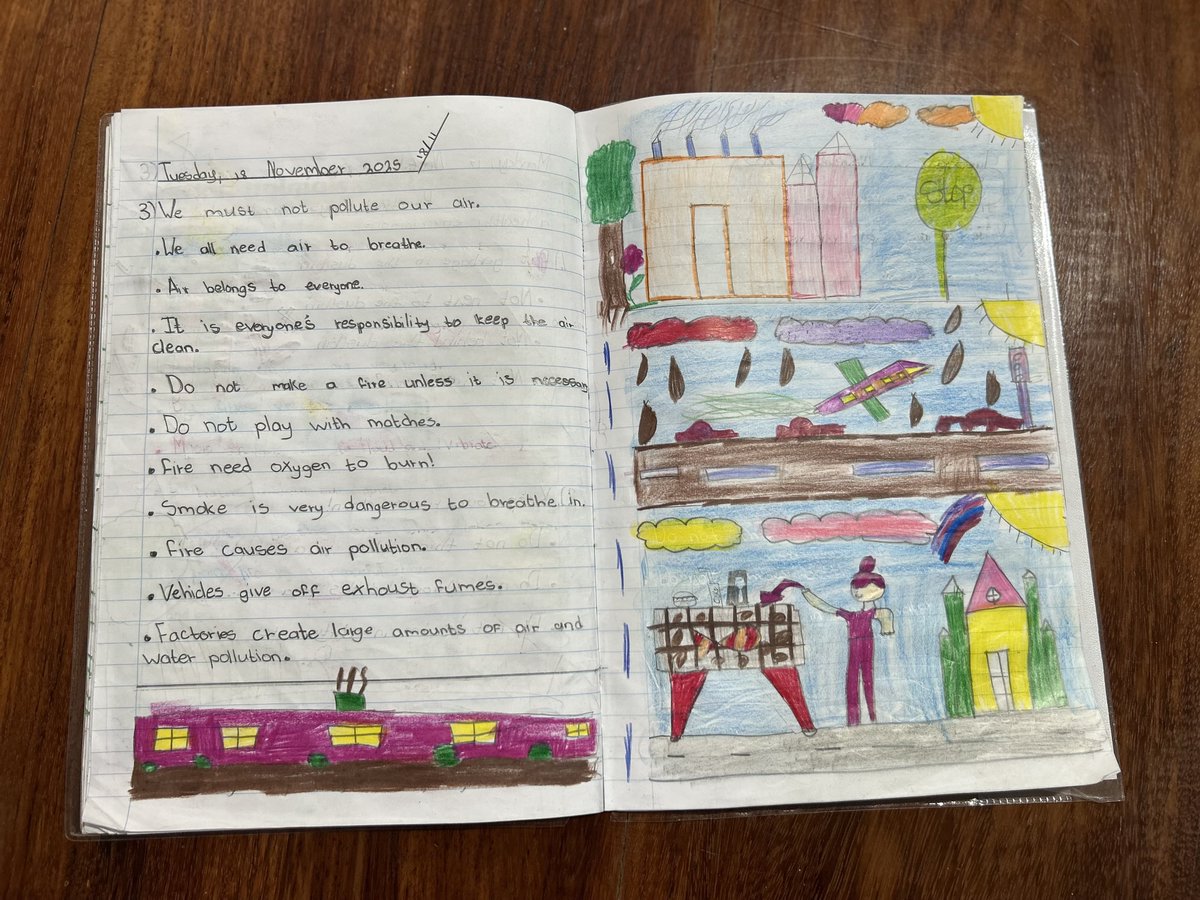 3) Tuesday, 18 November 2025
18/11
3) We must not pollute our air.
• We all need air to breathe.
• Air belongs to everyone.
• It is everyone's responsibility to keep the air
clean.
• Do not make a fire unless it is necessary
• Do not play with matches.
• Fire need oxygen to burn!
• Smoke is very dangerous to breathe in.
• Fire causes air pollution.
• Vehicles give off exhoust fumes.
• Factories create large amounts of air and
water pollution.
Stop